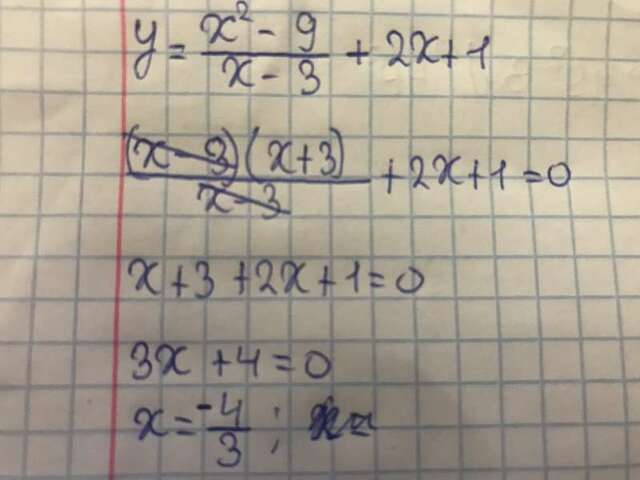 y = \frac{x² - 9}{x - 3} + 2x + 1
\frac{(x - 3)(x + 3)}{x - 3} + 2x + 1 = 0
x + 3 + 2x + 1 = 0
3x + 4 = 0
x = \frac{-4}{3};